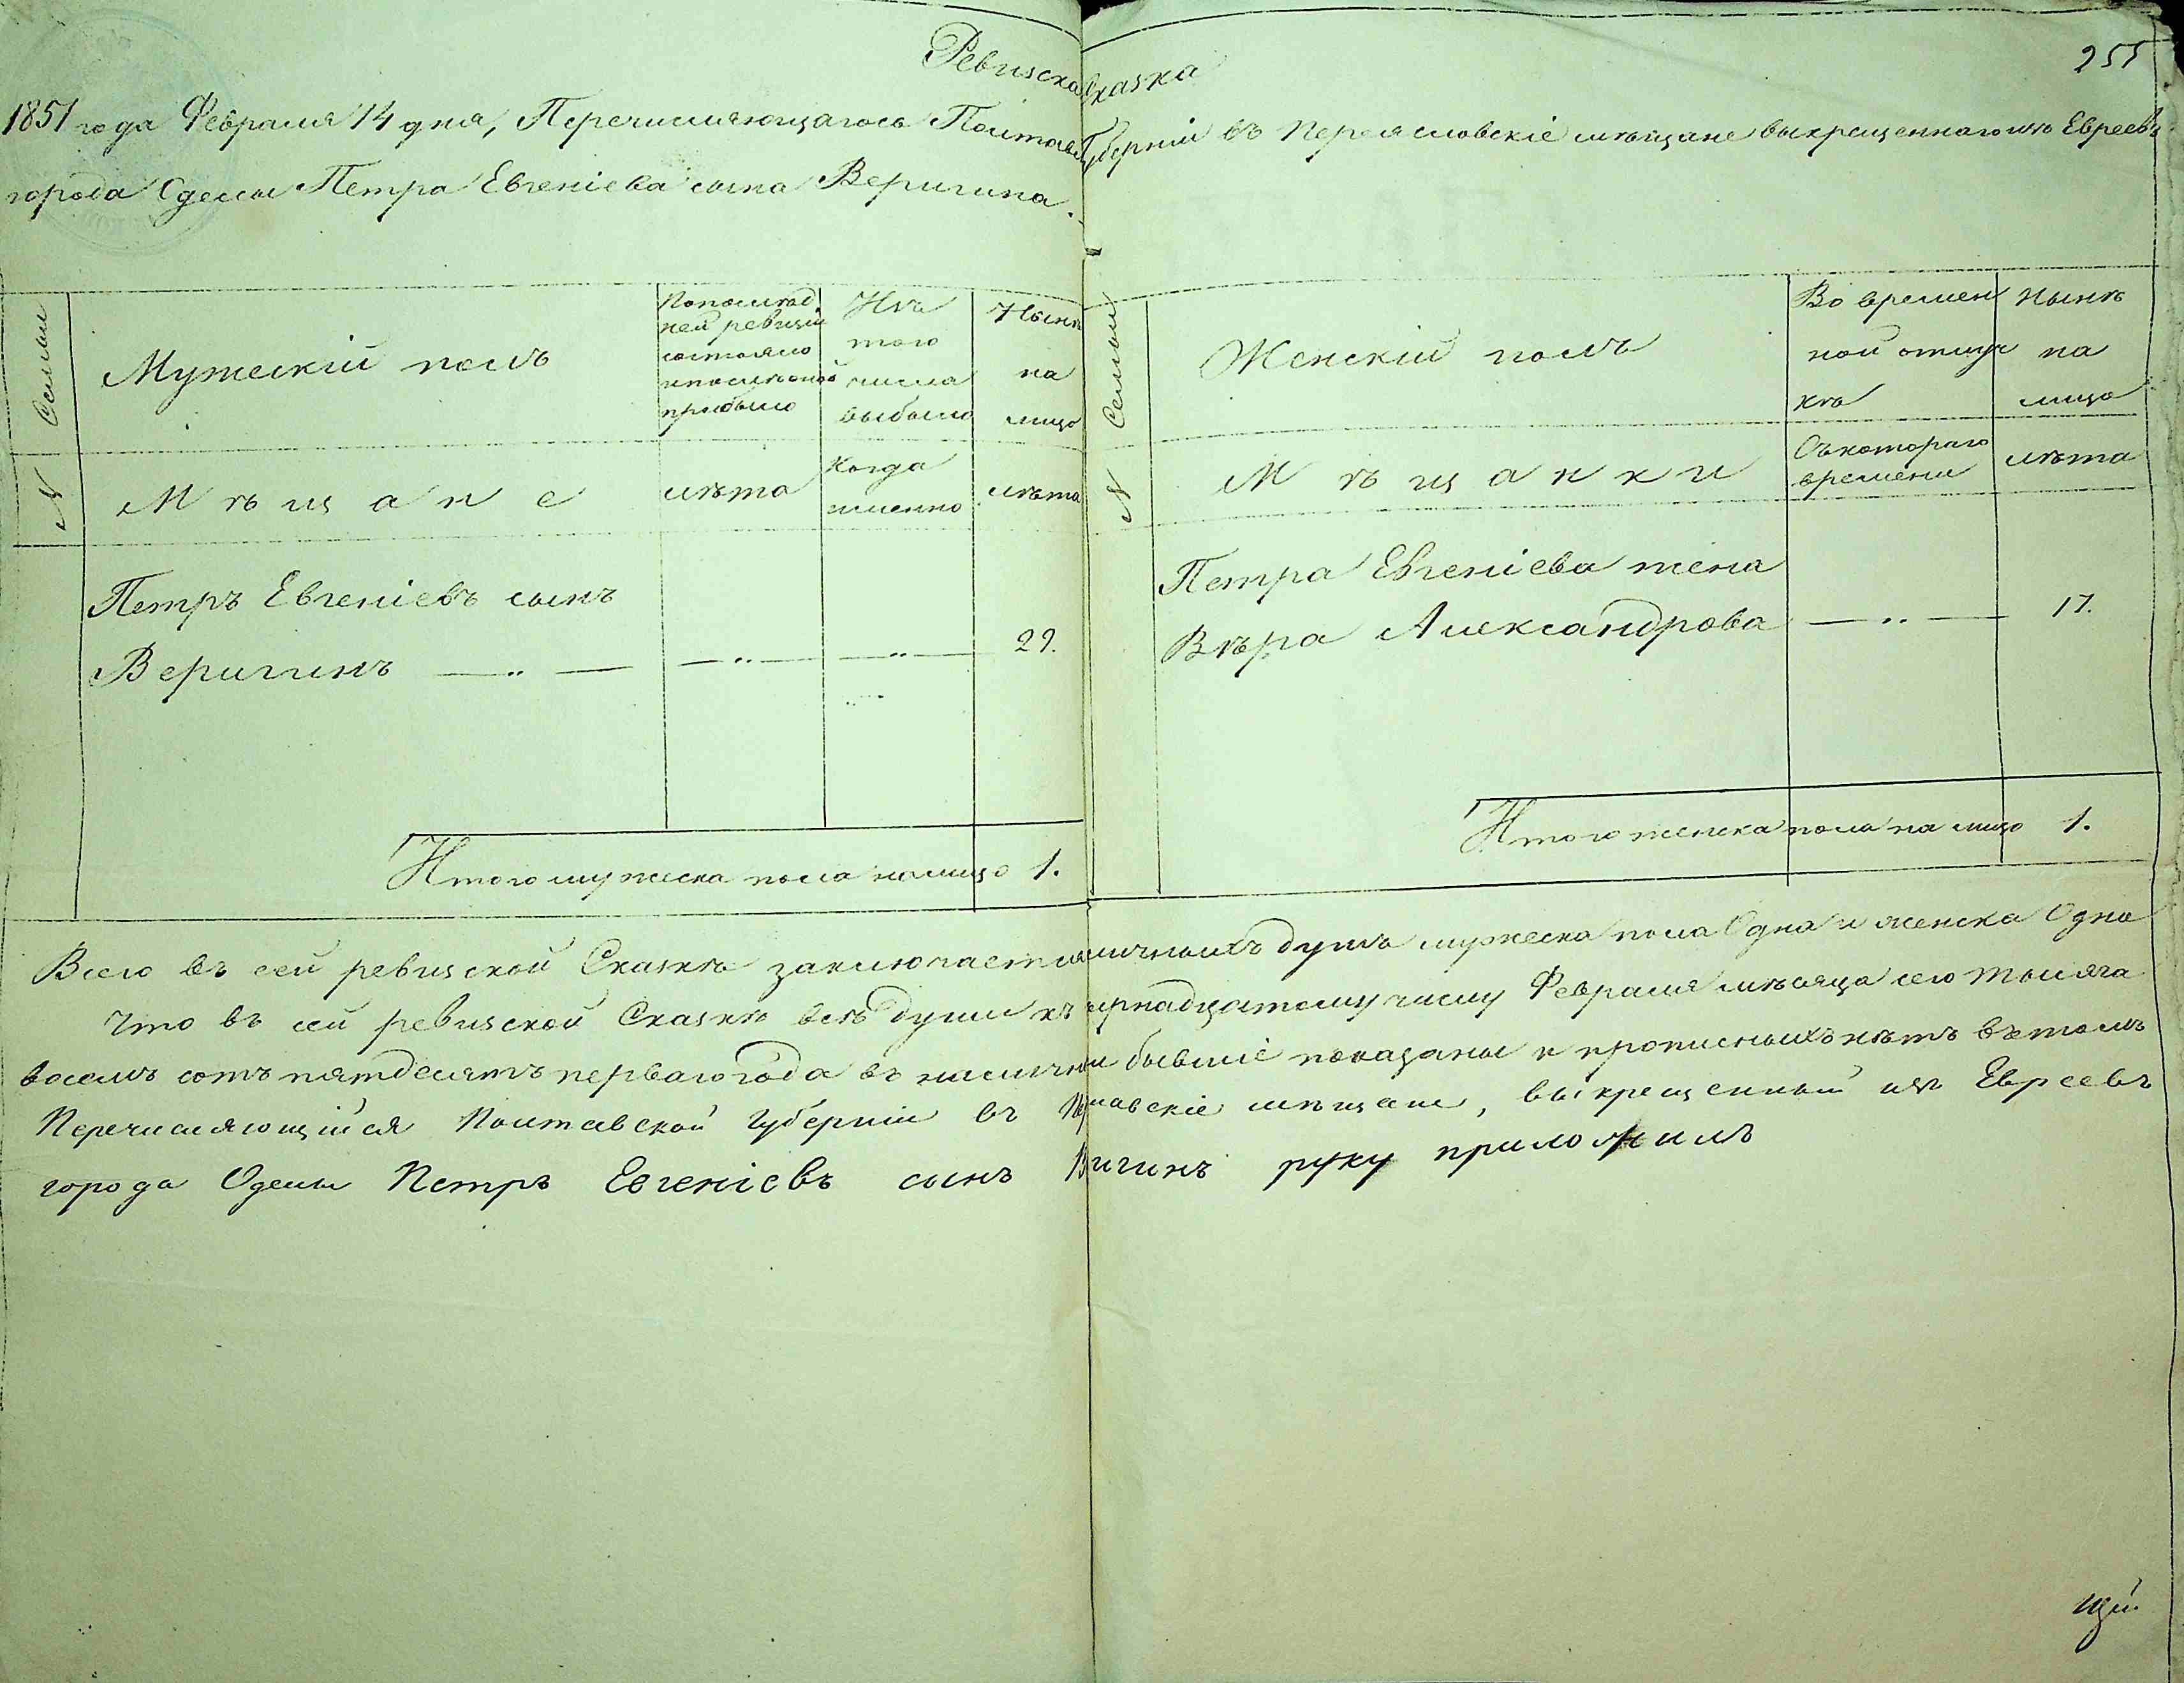 255
Ревизска сказка
1851 года Февраля 14 дня, Перечисляющагося Полтавс Губерніи въ Переясловскіе мѣщане выкрещеннаго изъ Евреевъ
города Одессы Петра Евгеніева сына Веригина.
№ Семьи
Мужескій полъ
По послѣд
ней ревизіи
состояло
и после оной
прибыло
Изъ
того
числа
выбыло
Нынѣ
на
лицо
Мѣщане
лѣта
Когда
именно
лѣта
Петръ Евгеніевъ сынъ
Веригинъ — „ — — „ — — „ — 29.
Итого мужеска пола на лицо 1.
№ Семьи
Женскій полъ
Во времен
ной отлуч
кѣ
Нынѣ
на
лицо
Мѣщанки
Съ котораго
времени
лѣта
Петра Евгеніева жена
Вѣра Александрова — „ — 17.
Итого женска пола на лицо 1.
Всего въ сей ревизской Сказкѣ заключается личныхъ душъ мужеска пола Одна и женска Одна
Что въ сей ревизской Сказкѣ всѣ души къ ырнадцатому числу Февраля мѣсяца сего тысяча
восемь сотъ пятдесятъ перваго года въ наличн и бывшіе показаны и прописныхъ нѣтъ въ томъ
Перечисляющійся Полтавской Губерніи въ Пе лавскіе мѣщане, выкрещенный изъ Евреевъ
города Одессы Петръ Евгеніевъ сынъ В игинъ руку приложилъ